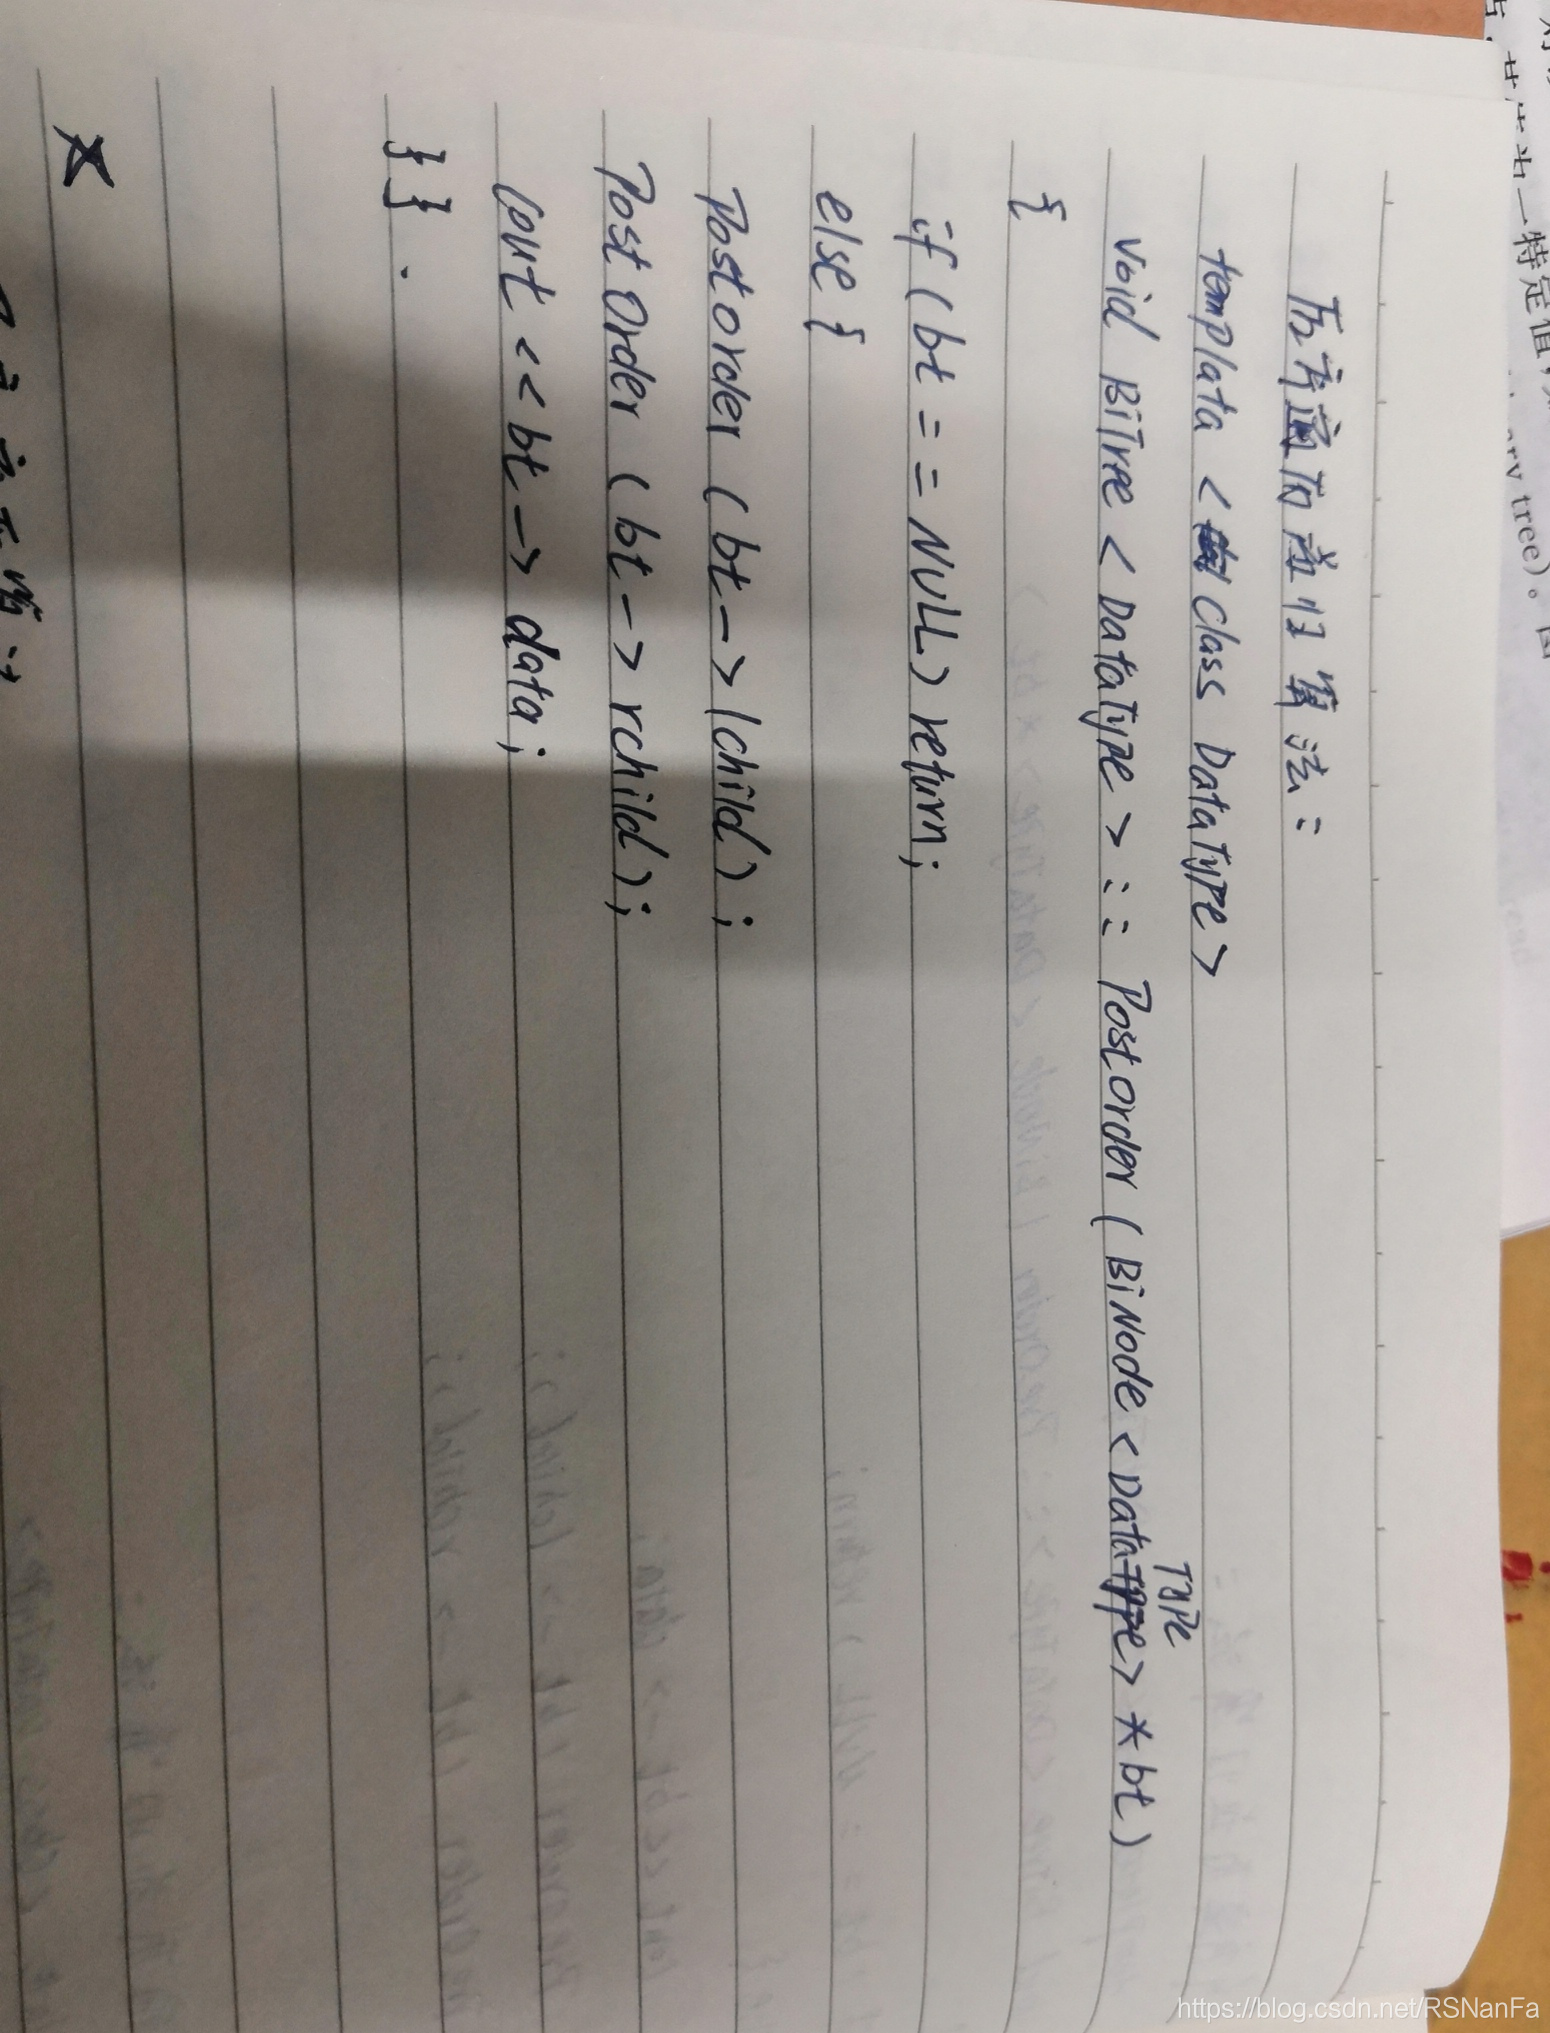 后序遍历递归算法:
templata <class DataType>
void BiTree <DataType>::Postorder (BiNode <DataType> *bt)
{
if (bt == NULL) return;
else {
Postorder (bt -> lchild);
PostOrder (bt -> rchild);
cout << bt -> data;
} } .
一特定值,
ary tree)。图
https://blog.csdn.net/RSNanFa